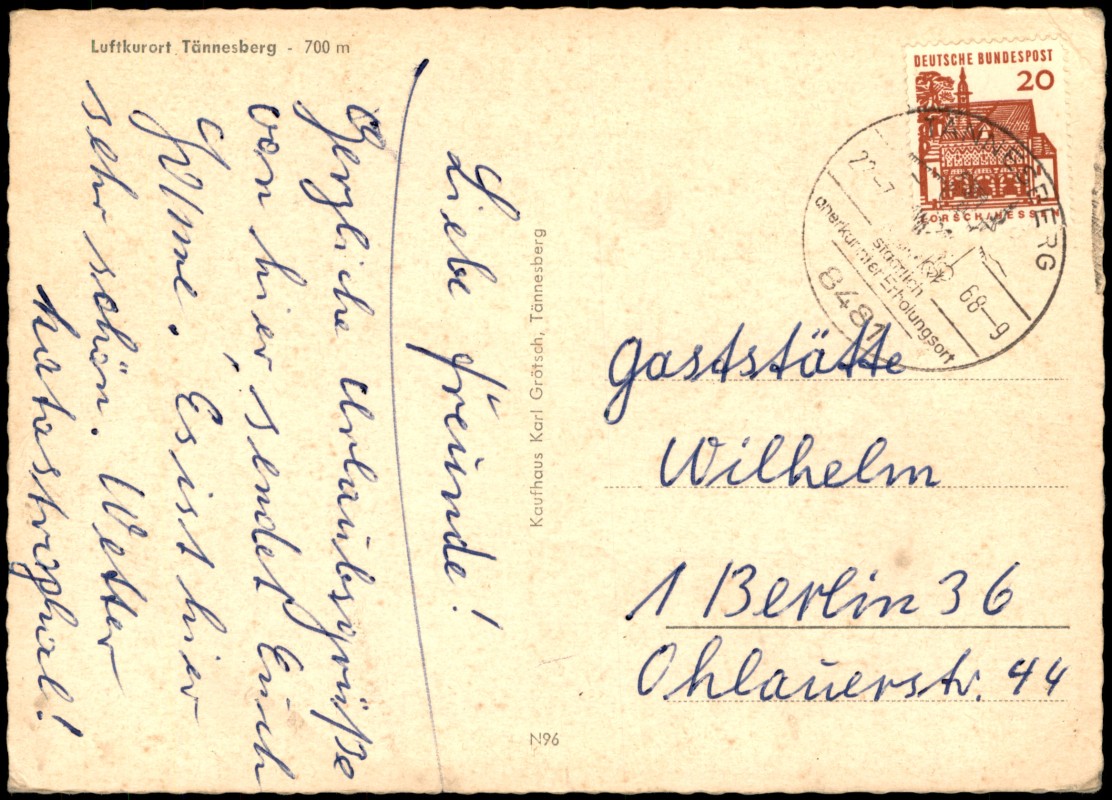 Luftkurort Tännesberg - 700 m
Liebe Freunde!
Herzliche Urlaubsgrüße
von hier sendet Euch
Es ist hier
sehr schön. Wetter
katastrophal!
Kaufhaus Karl Grötsch, Tännesberg
N96
DEUTSCHE BUNDESPOST
20
LORSCH/HESSEN
TÄNNESBERG
22-7 68-9
staatlich
anerkannter Erholungsort
8481
Gaststätte
Wilhelm
1 Berlin 36
Ohlauerstr. 44